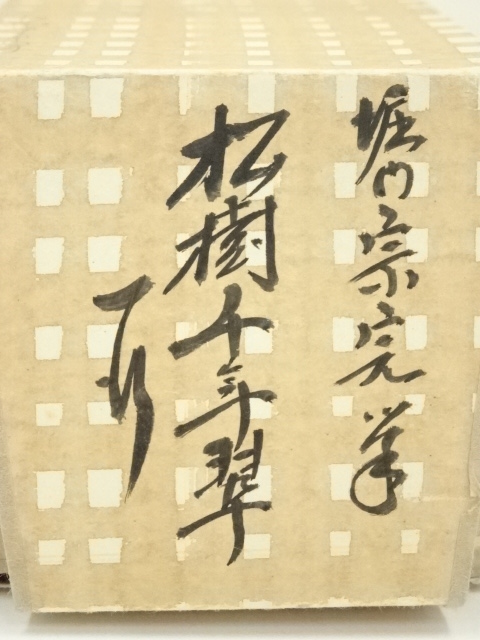 堀内宗完筆
松樹千年翠
一行